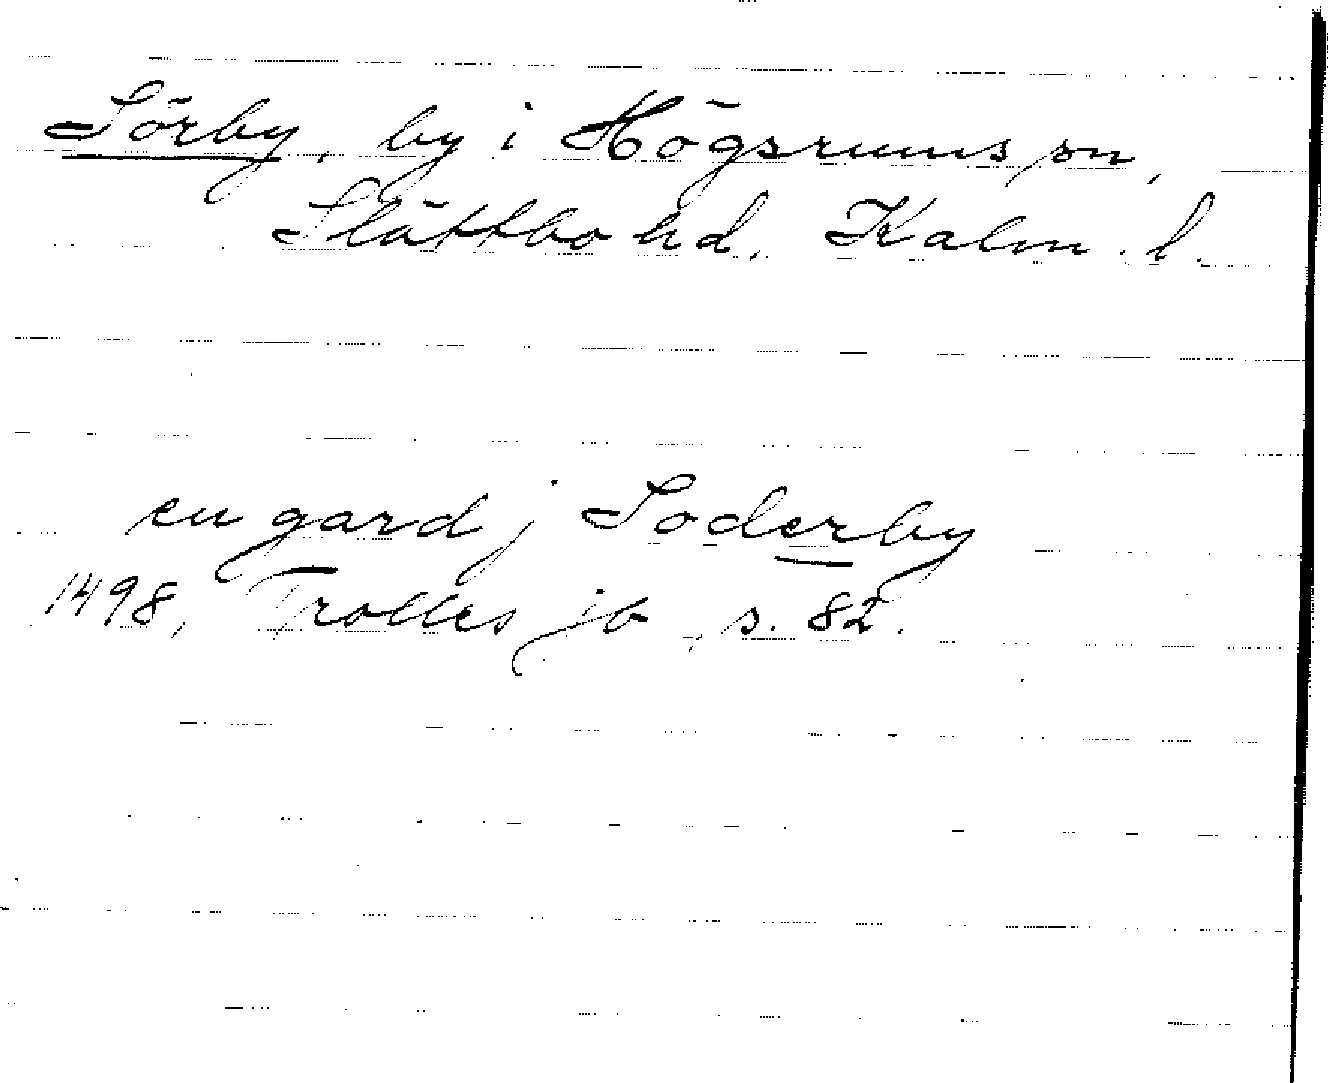 Sörby, by i Högsrums sn,
Slättbo hd, Kalm. l.
en gard j Soderby
1498, Trolles jb, s. 82.